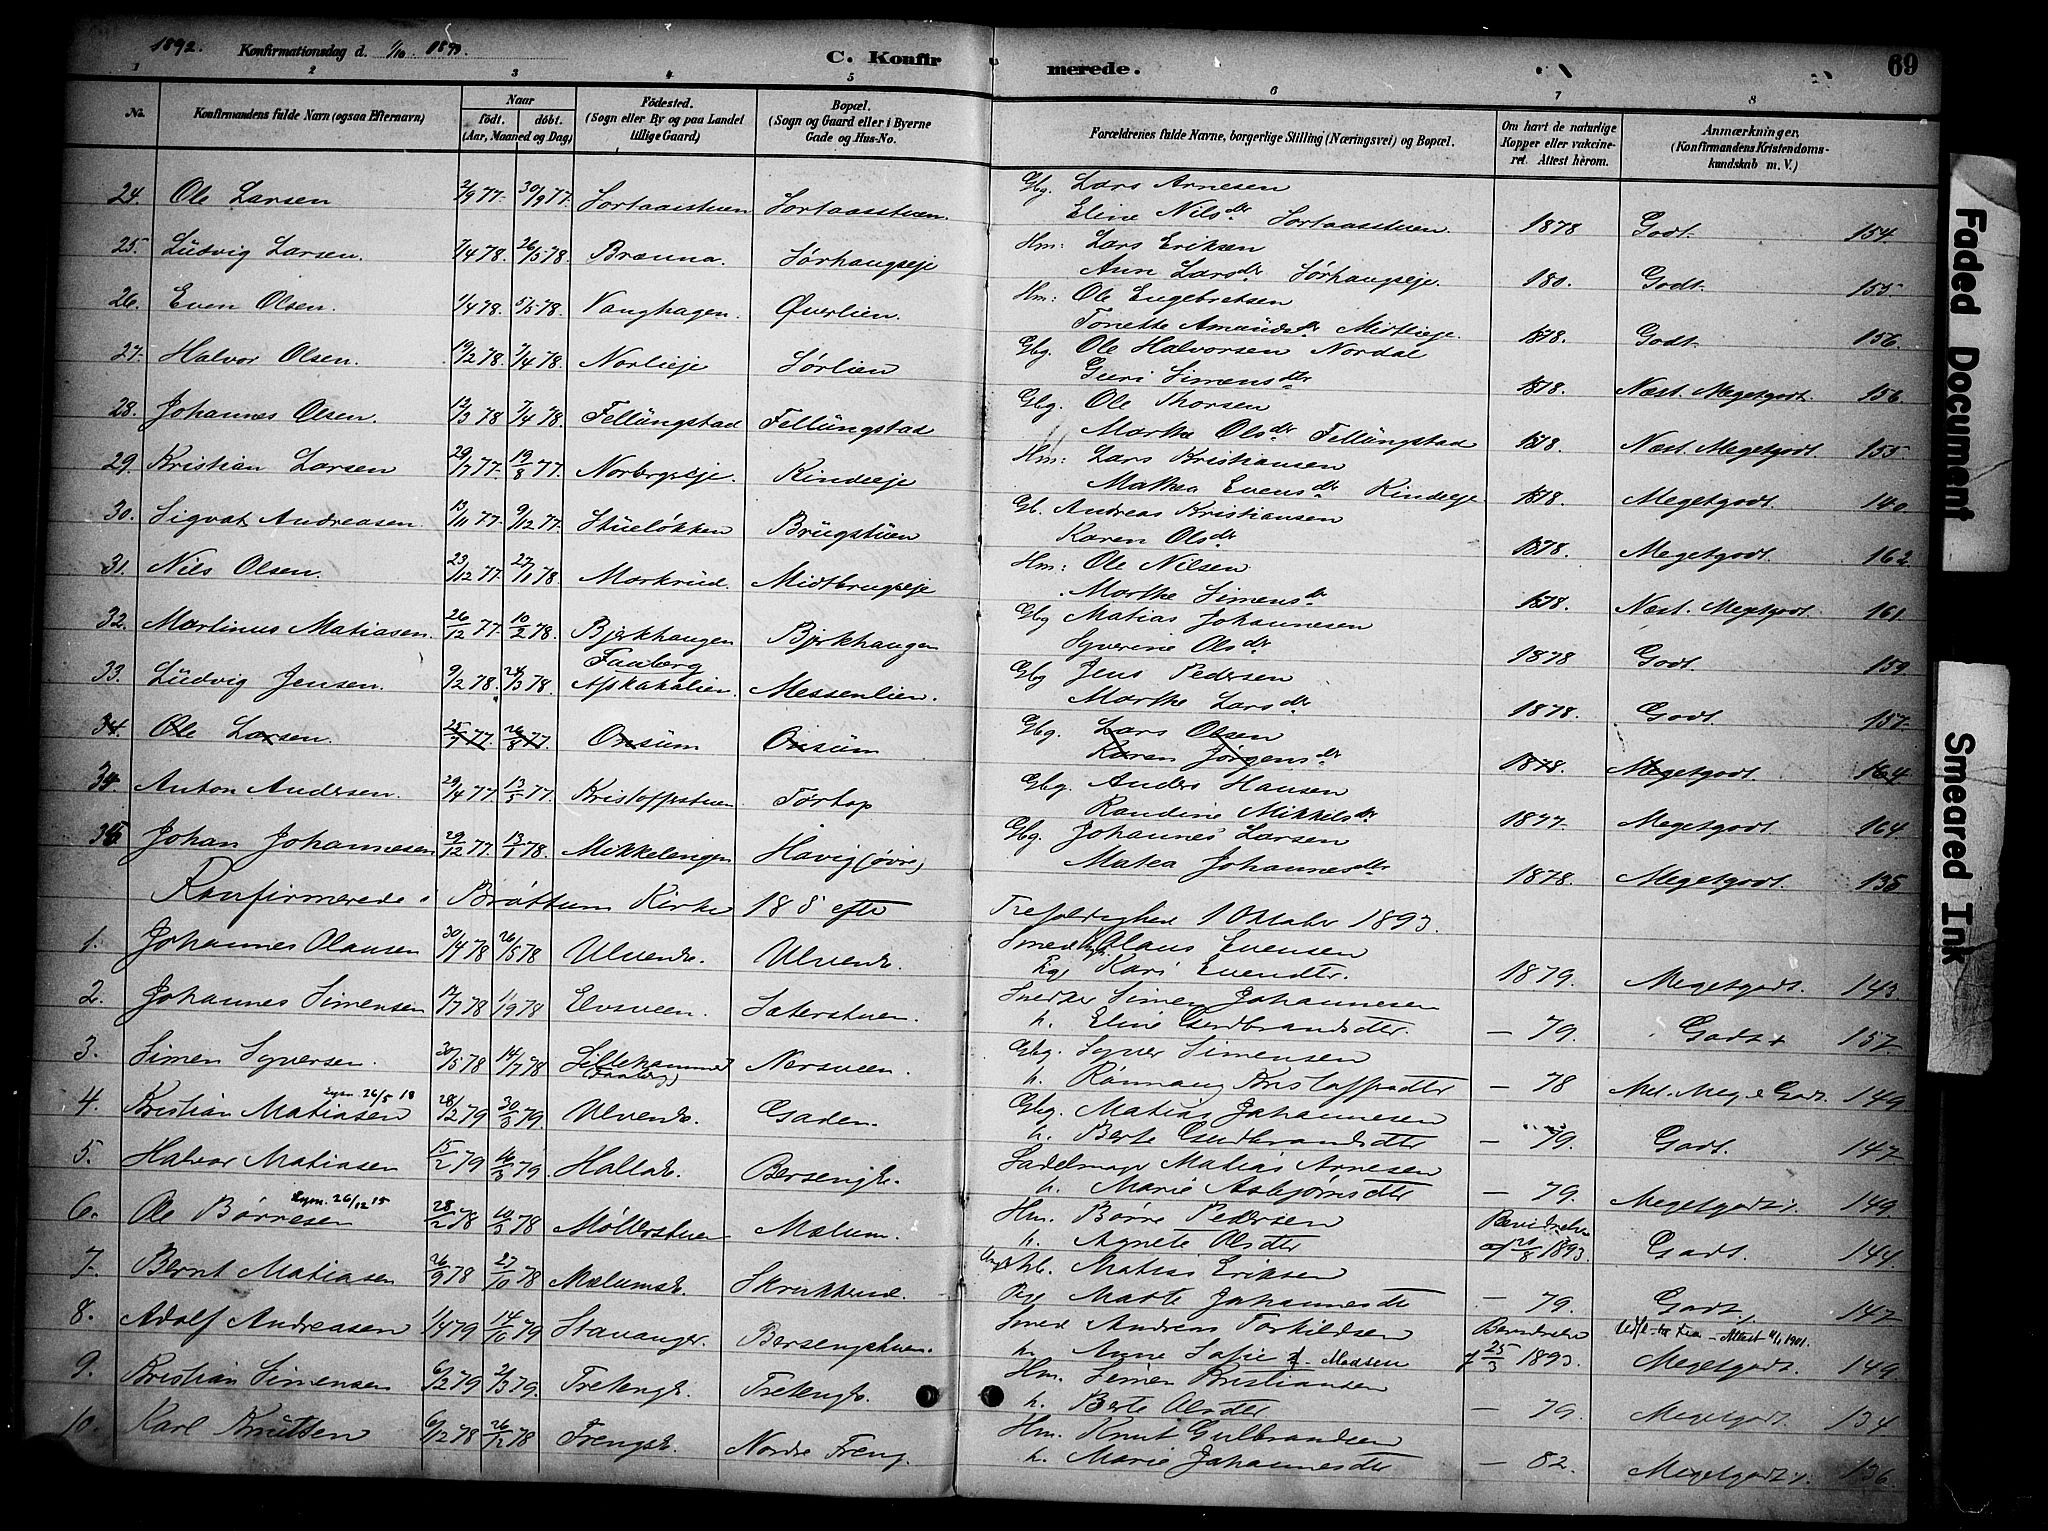 1892. Konfirmationsdag d. 1/10 1893. C. Konfirmerede. 69
1 2 3 4 5 6 7 8
No. Konfirmandens fulde Navn (ogsaa Efternavn) Naar födt. döbt. (Aar, Maaned og Dag) Födested. (Sogn eller By og paa Landet tillige Gaard) Bopæl. (Sogn og Gaard eller i Byerne Gade og Hus-No. Forældrenes fulde Navne, borgerlige Stilling (Næringsvei) og Bopæl. Om havt de naturlige Kopper eller vakcineret. Attest herom. Anmærkninger, (Konfirmandens Kristendomskundskab m. V.)
24. Ole Larsen 2/9 77. 30/9 77. Sortaasstuen Sortaasstuen. Gbg. Lars Arnesen
Eline Nilsdr Sortaasstuen 1878 Godt. 154.
25. Ludvig Larsen. 7/4 78. 26/5 78. Brænna. Sørhaugseje Hm: Lars Eriksen
Ann Larsdr Sørhaugseje. 180. Godt. 155.
26. Even Olsen. 1/4 78. 5/5 78. Vanghagen. Øverlien. Hm: Ole Engebretsen
Tonette Amundsdr Midtlieje. 1878. Godt. 156.
27. Halvor Olsen. 19/2 78. 7/4 78. Norlieje Sørlien Gbg. Ole Halvorsen Nordal
Guri Simensdtr 1878. Næst. Megetgodt. 156.
28. Johannes Olsen. 12/3 78 7/4 78. Fellungstad Fellungstad Gbg. Ole Thorsen
Marthe Olsdr Fellungstad 1878. Næst. Megetgodt. 155.
29. Kristian Larsen 29/7 77. 19/8 77. Norbergseje. Kindeeje Hm: Lars Kristiansen
Mathea Evensdr Kindeeje 1878. Megetgodt. 140.
30. Sigvat Andreasen. 13/11 77. 9/12 77. Stueløkken Brugstuen Gb. Andreas Kristiansen
Karen Olsdr 1878. Megetgodt. 162.
31. Nils Olsen. 23/12 77. 27/1 78. Morkrud. Midtbrugseje Hm: Ole Nilsen
Marthe Simensdr 1878. Næst. Megetgodt. 161.
32. Martinus Matiasen. 26/12 77. 10/2 78. Bjerkhaugen Bjerkhaugen Gbg Matias Johannesen
Syverine Olsdr 1878 Godt. 159.
33. Ludvig Jensen. 9/2 78. 24/3 78. Faaberg
Messenlien. Gbg Jens Pedersen
Marthe Larsdr 1878. Godt. 157.
34. Ole Larsen. 25/7 77. 26/8 77. Onsum Onsum Gbg. Lars Olsen
Karen Jørgensdr 1878. Megetgodt. 164
34 Anton Andersen. 29/4 77. 13/5 77. Kristoffestuen Tørtop Gbg. Anders Hansen
Randine Mikkelsdr 1877. Megetgodt. 164.
35 Johan Johannesen 29/12 77. 13/1 78. Mikkelengen Havig (øvre) Gbg Johannes Larsen
Matea Johannesdtr 1878. Megetgodt. 135
Konfirmerede i Brøttum Kirke 18 S efter Trefoldighed 1 Oktober 1893.
1. Johannes Olausen 30/4 78 26/5 78 Ulvenh. Ulvenh. Smed Olaus Evensen
Pige Kari Evendtr. 1879. Megetgodt. 143.
2. Johannes Simensen 17/7 78 1/9 78 Elvsveen. Sæterstuen. Snedker Simen Johannesen
h. Eline Gudbrandsdtr. — 79. Godt+ 157.
3. Simen Syversen. 30/5 78 14/7 78 Lillehammer (Faaberg) Nersveen. Gbg. Syver Simensen
h. Rønnaug Kristoffersdtr — 78 Mel. Meg. e Godt. 149.
4. Kristian Matiasen Lysn. 26/5 18 28/2 79 30/3 79 Ulvenh. Gaden. Gbg. Matias Johannesen
h. Berte Gudbrandsdtr — 79. Godt. 147.
5. Halvor Matiasen 15/2 79 16/3 79 Hallah. Bersengh. Sadelmager Matias Arnesen
h. Marie Asbjørnsdtr — 79. Megetgodt. 149.
6. Ole Børresen Lysn. 26/12 15 28/2 78 10/3 78 Møllerstuen Mælum. Hm. Børre Pedersen
h. Agnete Olsdtr af 21/8 1893. Godt. 144.
7. Bernt Matiasen 26/9 78 27/10 78 Mælumsh. Skrukkerud. Matias Eriksen
Pige Marte Johannesdtr — 79. Godt. 147.
8. Adolf Andreasen 1/4 79 14/10 79 Stavanger. Bersengstuen. Smed Andreas Torkildsen
h. Anne Sofie f. Madsen 25/3 1893. Attest 1901. Megetgodt. 149.
9. Kristian Simensen 6/2 79 2/3 79. Tretengh. Tretengh. Hm. Simen Kristiansen
h. Berte Olsdtr — 79. Megetgodt. 134
10. Karl Knutsen 6/12 78 26/12 78 Frengsh. Nordre Freng. Hm. Knut Gulbrandsen
h. Marie Johannesdtr — 82. Megetgodt. 136.
Faded Document
Smeared Ink